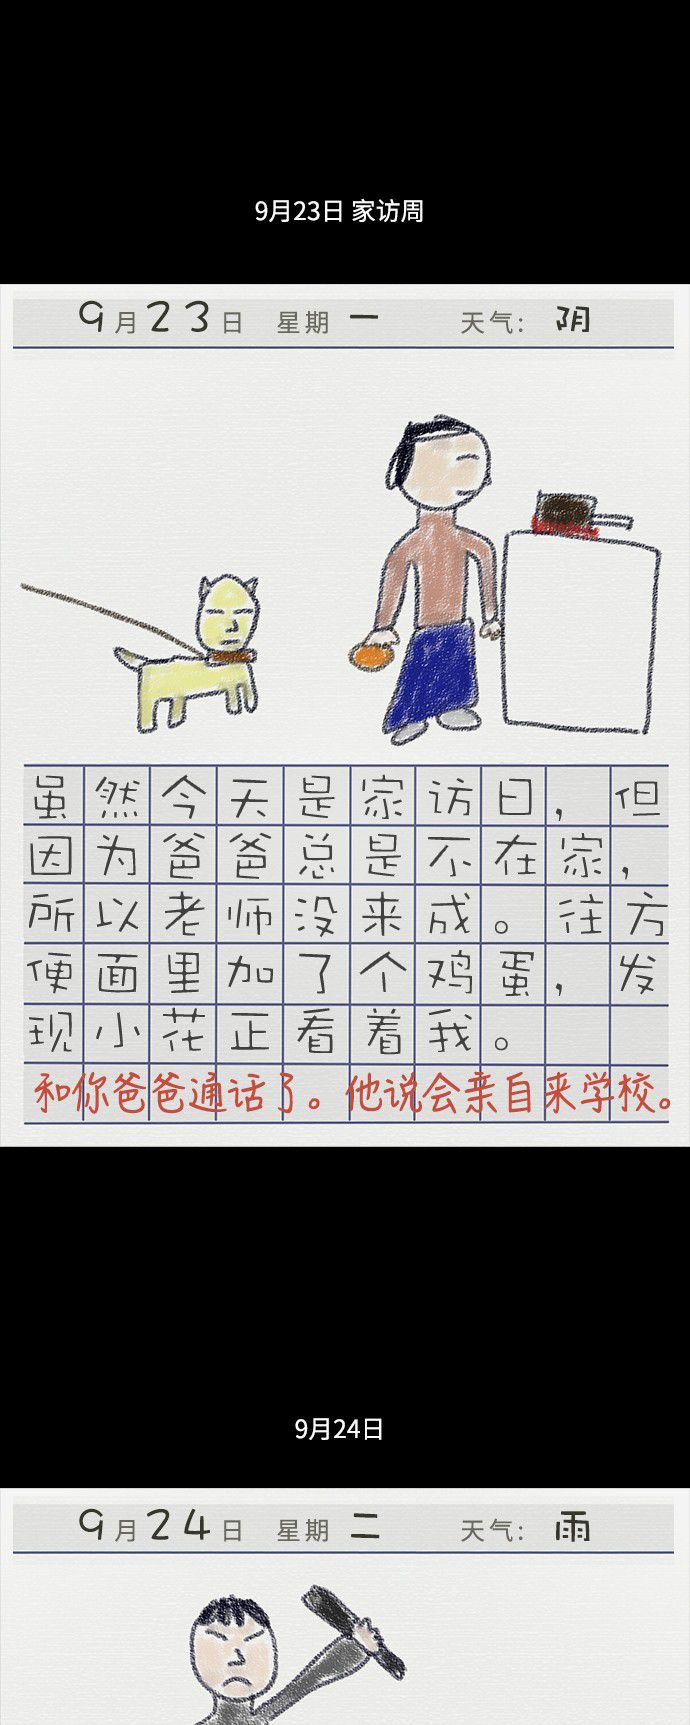 9月23日 家访周
9月23日 星期一 天气: 阴
虽然今天是家访日，但
因为爸爸总是不在家，
所以老师没来成。往方
便面里加了个鸡蛋，发
现小花正看着我。
和你爸爸通话了。他说会亲自来学校。
9月24日
9月24日 星期二 天气: 雨